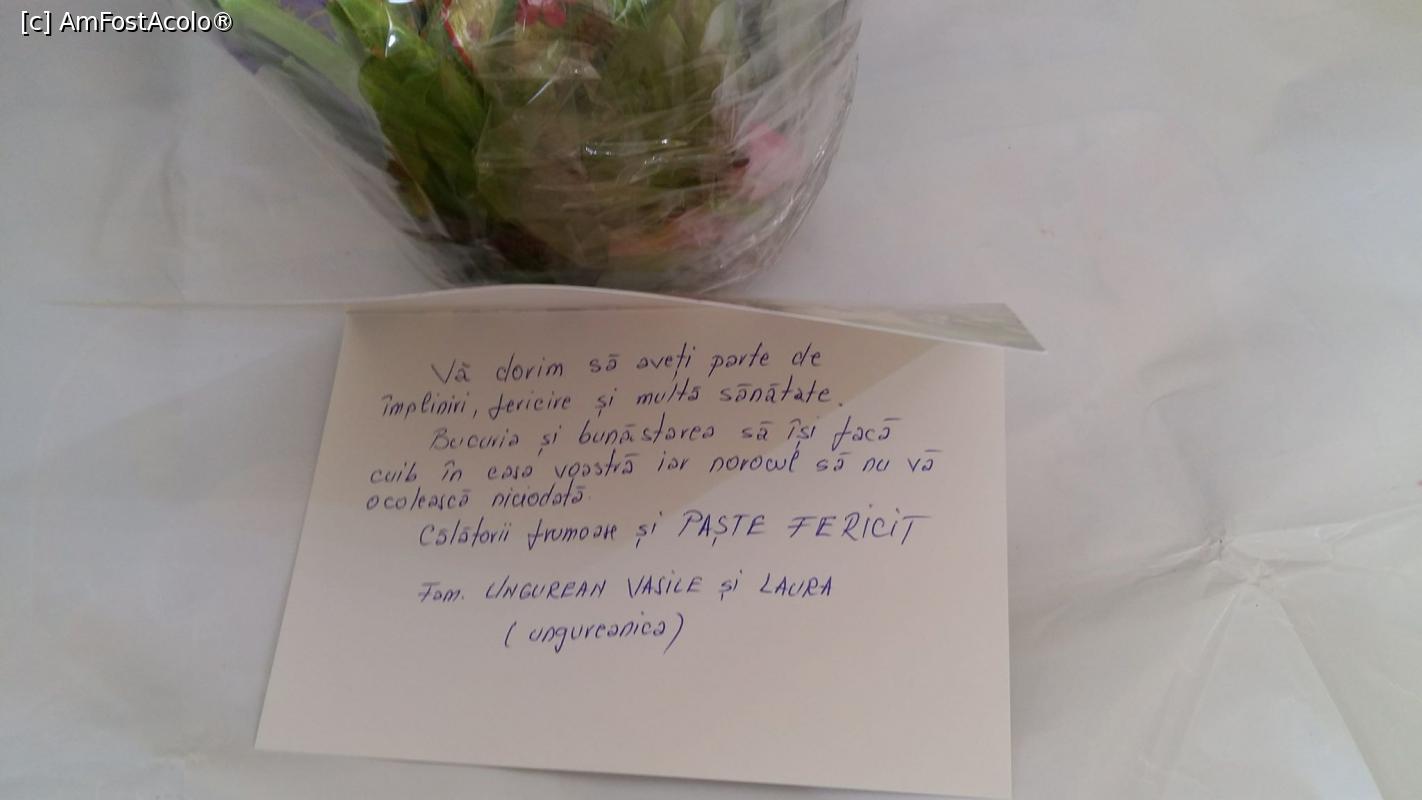 [c] AmFostAcolo®
Vă dorim să aveți parte de
împliniri, fericire și multă sănătate.
Bucuria și bunăstarea să își facă
cuib în casa voastră iar norocul să nu vă
ocolească niciodată.
Călătorii frumoase și PAȘTE FERICIT
Fam. UNGUREAN VASILE și LAURA
(ungureanica)